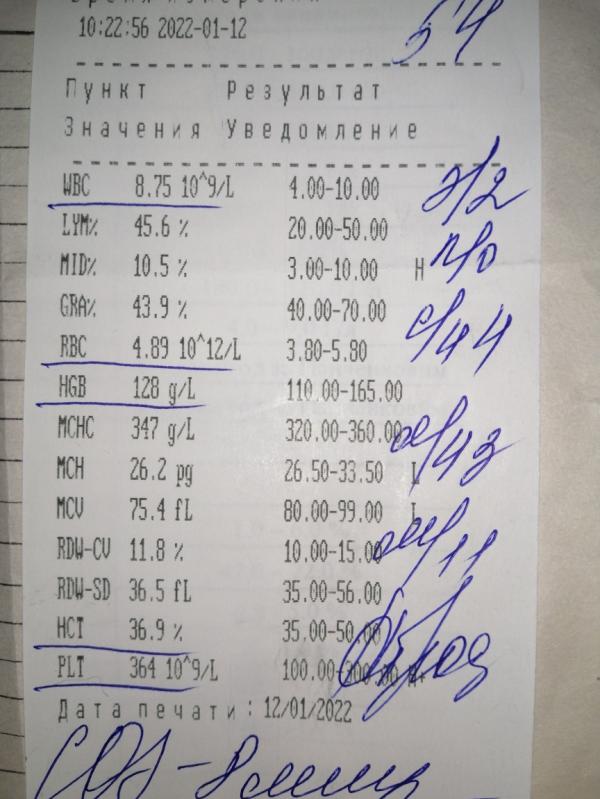 10:22:56 2022-01-12 54
Пункт Результат
Значения Уведомление
WBC 8.75 10^9/L 4.00-10.00 э/2
LYM% 45.6 % 20.00-50.00
MID% 10.5 % 3.00-10.00 H п/0
GRA% 43.9 % 40.00-70.00
RBC 4.89 10^12/L 3.80-5.80 с/44
HGB 128 g/L 110.00-165.00
MCHC 347 g/L 320.00-360.00 л/43
MCH 26.2 pg 26.50-33.50 L
MCV 75.4 fL 80.00-99.00 L
RDW-CV 11.8 % 10.00-15.00 м/11
RDW-SD 36.5 fL 35.00-56.00
HCT 36.9 % 35.00-50.00
PLT 364 10^9/L 100.00-300.00
Дата печати: 12/01/2022
СОЭ-8мм/